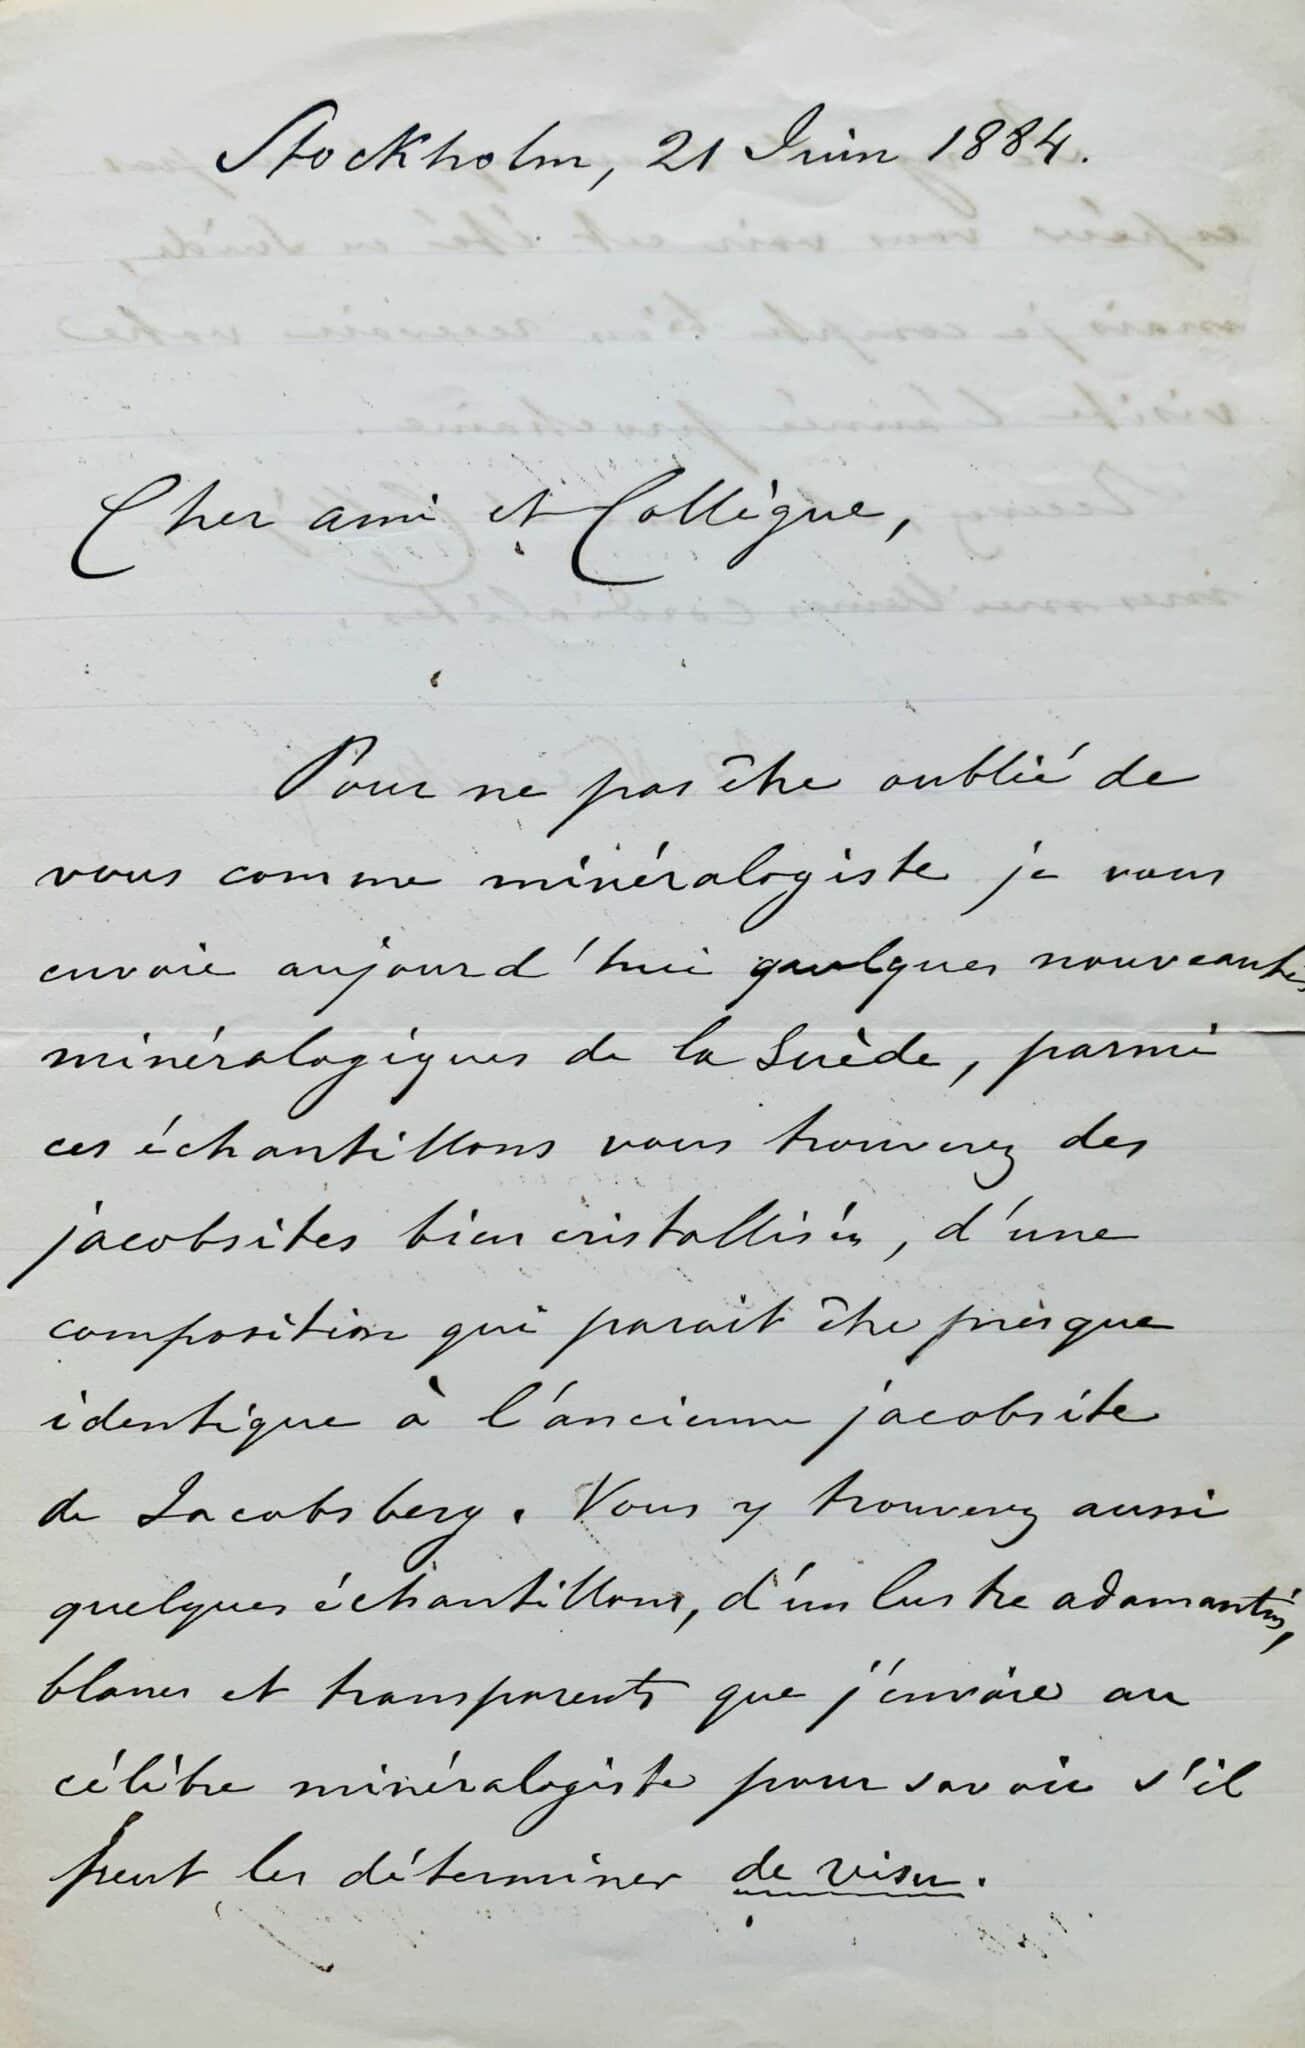 Stockholm, 21 Juin 1884.
Cher ami et Collègue,
Pour ne pas être oublié de
vous comme minéralogiste je vous
envoie aujourd'hui quelques nouveautés
minéralogiques de la Suède, parmi
ces échantillons vous trouverez des
jacobsites bien cristallisés, d'une
composition qui parait être presque
identique à l'ancienne jacobsite
de Jacobsberg. Vous y trouverez aussi
quelques échantillons, d'un lustre adamantin,
blancs et transparents que j'envoie au
célèbre minéralogiste pour savoir s'il
peut les déterminer de visu.